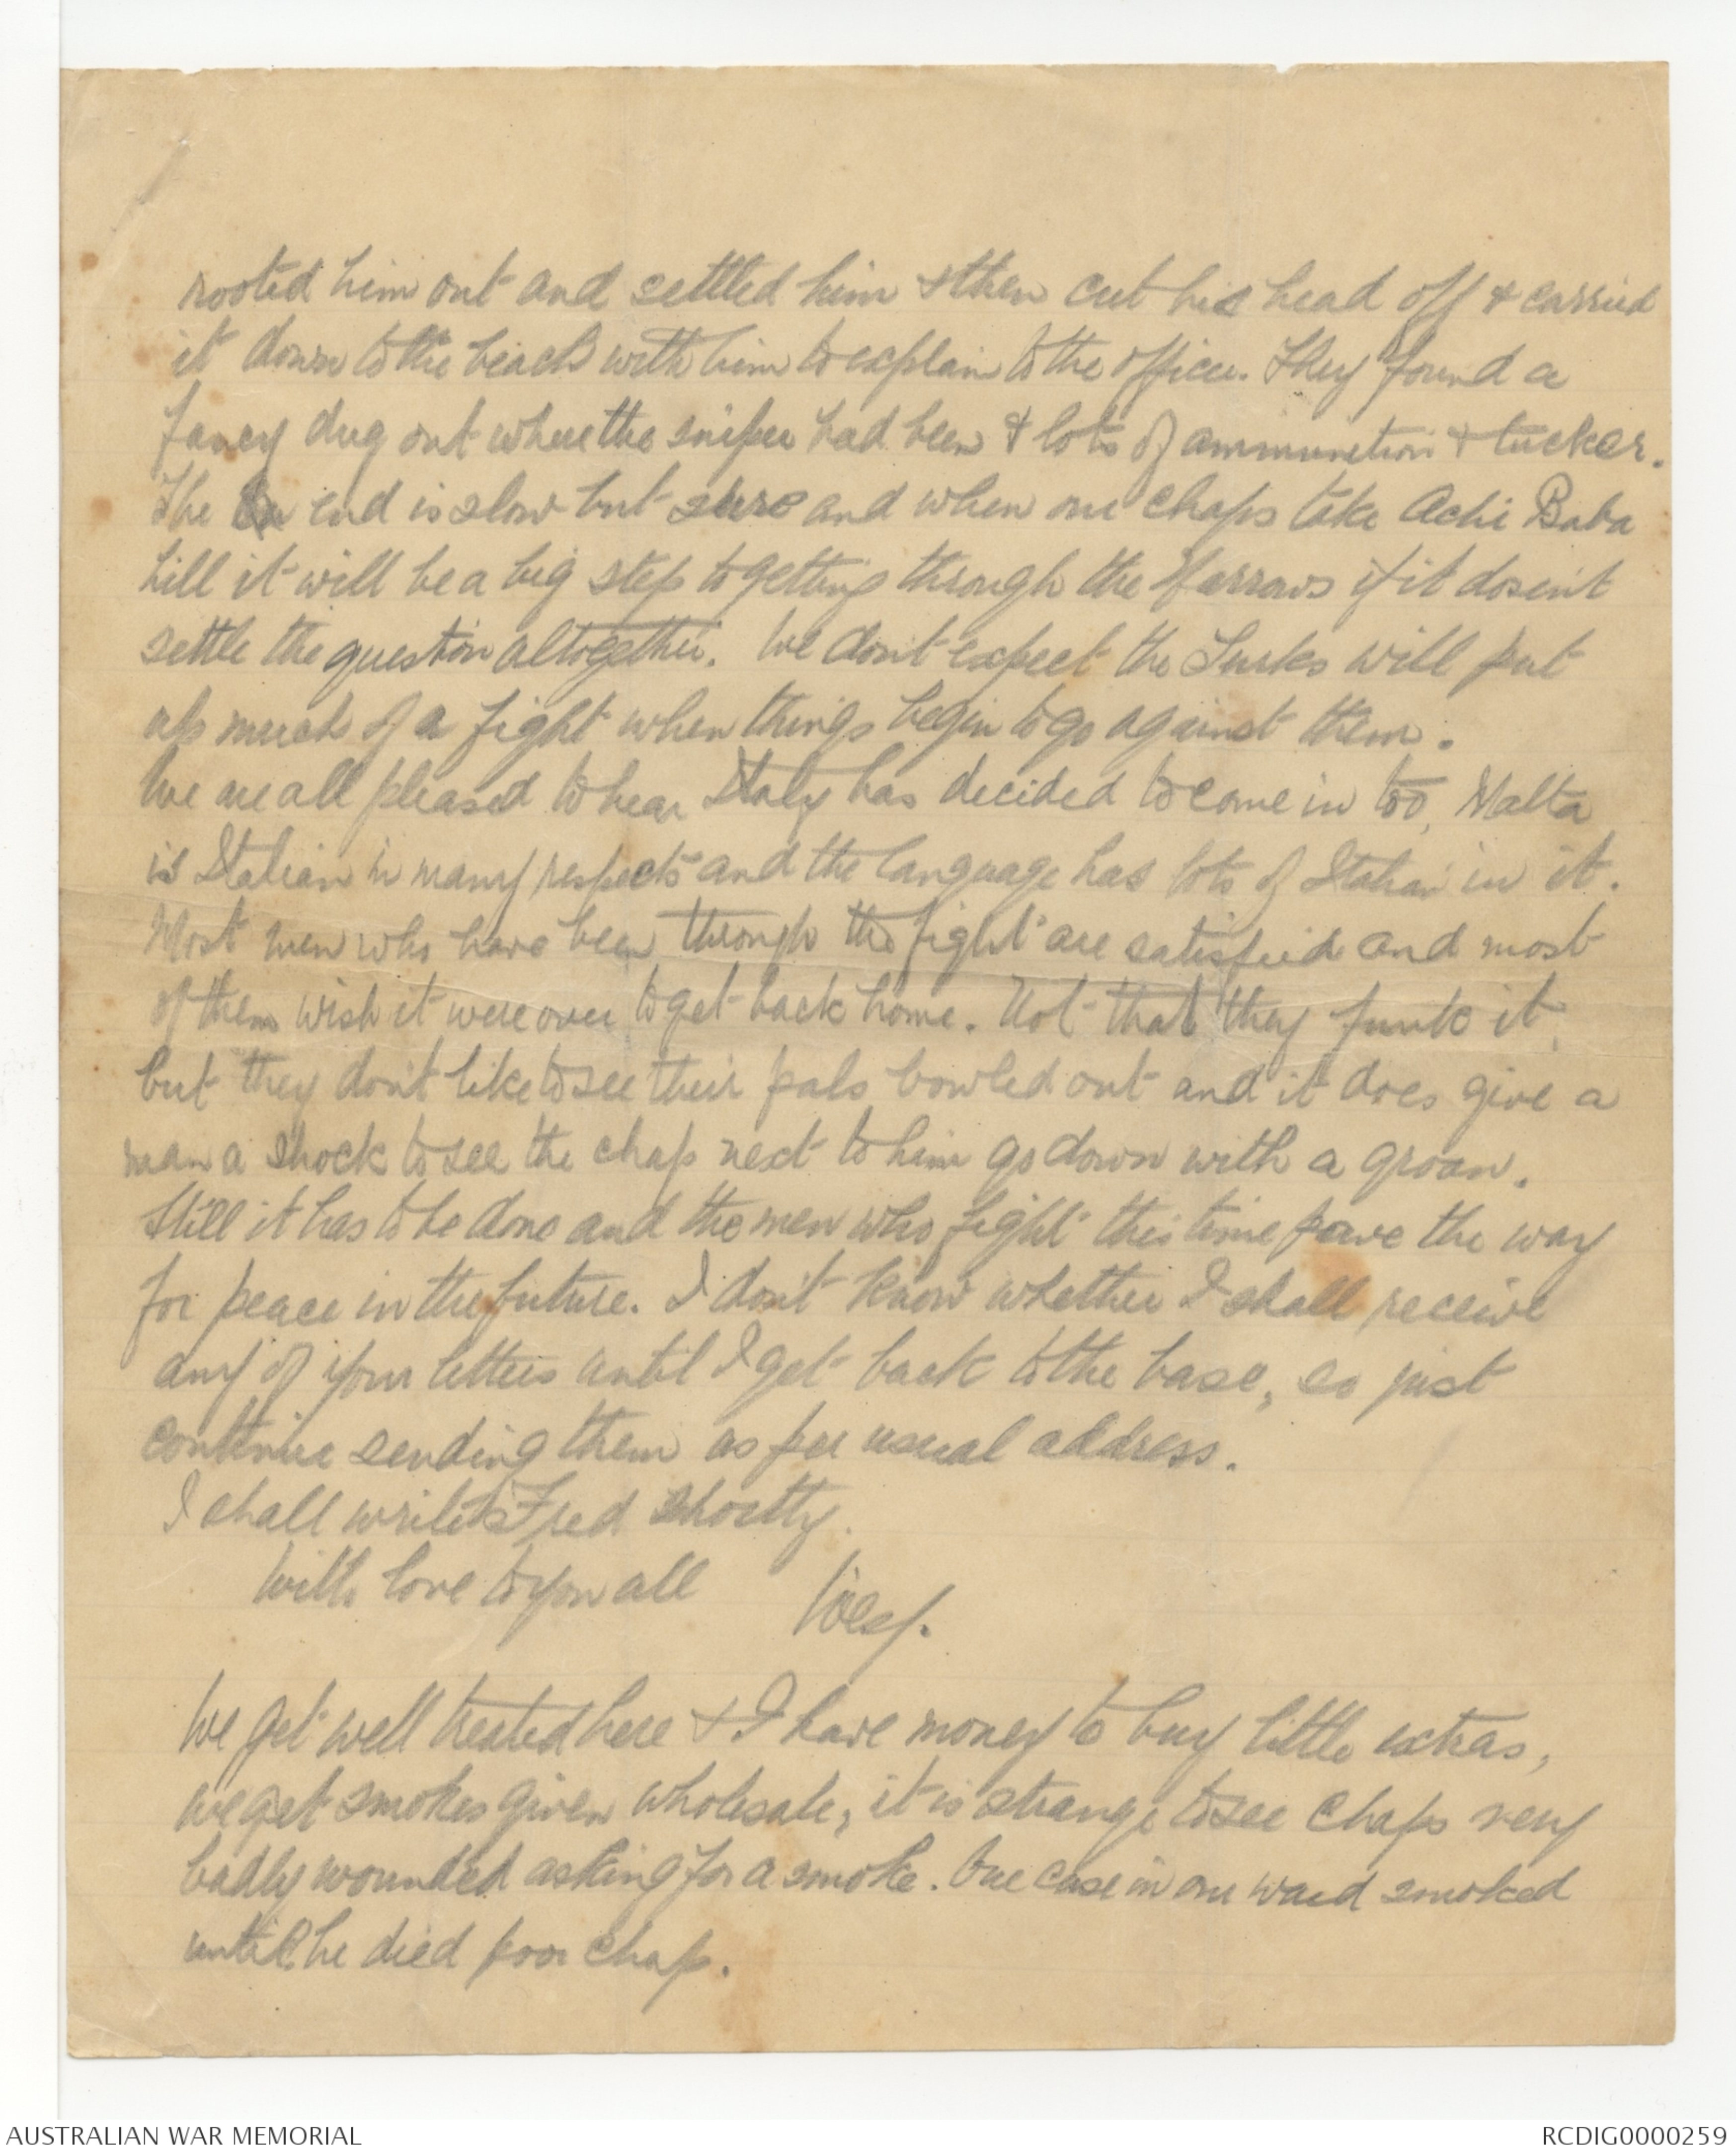 rooted him out and settled him & then cut his head off & carried
it down to the beach with him to explain to the officer. They found a
fancy dug out where the sniper had been & lots of ammunition & tucker.
The end is slow but sure and when our chaps take Achi Baba
hill it will be a big step to getting through the Narrows if it dosen't
settle the question altogether. We don't expect the Turks will put
up much of a fight when things begin to go against them.
We are all pleased to hear Italy has decided to come in too, Malta
is Italian in many respects and the language has lots of Italian in it.
Most men who have been through the fight are satisfied and most
of them wish it were over to get back home. Not that they funk it,
but they don't like to see their pals bowled out and it does give a
man a shock to see the chap next to him go down with a groan.
Still it has to be done and the men who fight this time pave the way
for peace in the future. I don't know whether I shall receive
any of your letters until I get back to the base, so just
continue sending them as per usual address.
I shall write to Fred shortly.
With love to you all
Wesl.
We get well treated here & I have money to buy little extras,
we get smokes given wholesale, it is strange to see chaps very
badly wounded asking for a smoke. One case in our ward smoked
until he died poor chap.
AUSTRALIAN WAR MEMORIAL
RCDIG0000259